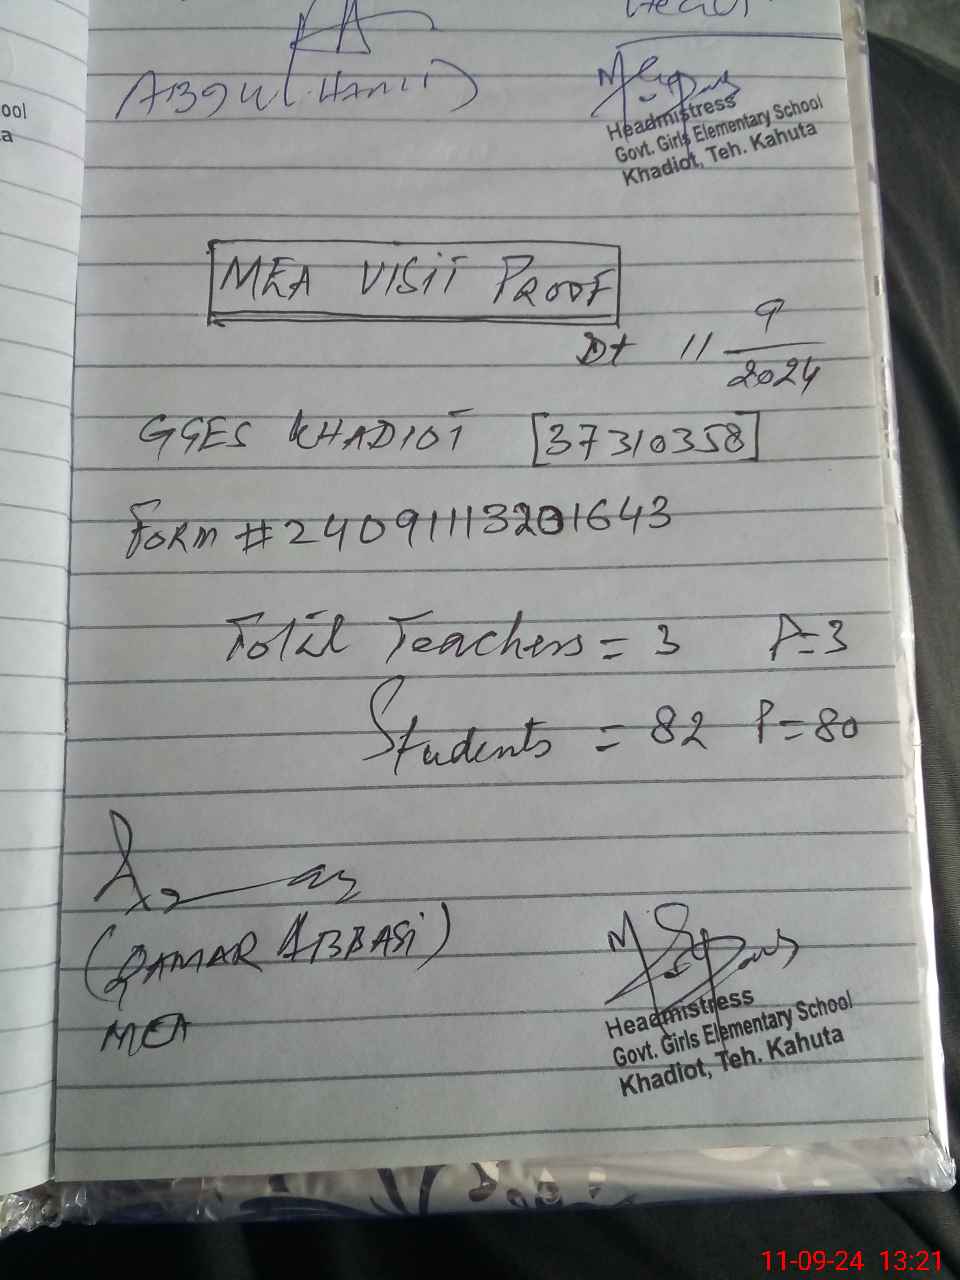 ool
a
Abdul Hamid)
Headmistress
Govt. Girls Elementary School
Khadiot, Teh. Kahuta
MEA VISIT PROOF
Dt 11 9/2024
GGES KHADIOT [37310358]
Form # 240911113201643
Total Teachers = 3 P=3
Students = 82 P=80
(QAMAR ABBASi)
MEA
Headmistress
Govt. Girls Elementary School
Khadiot, Teh. Kahuta
11-09-24 13:21